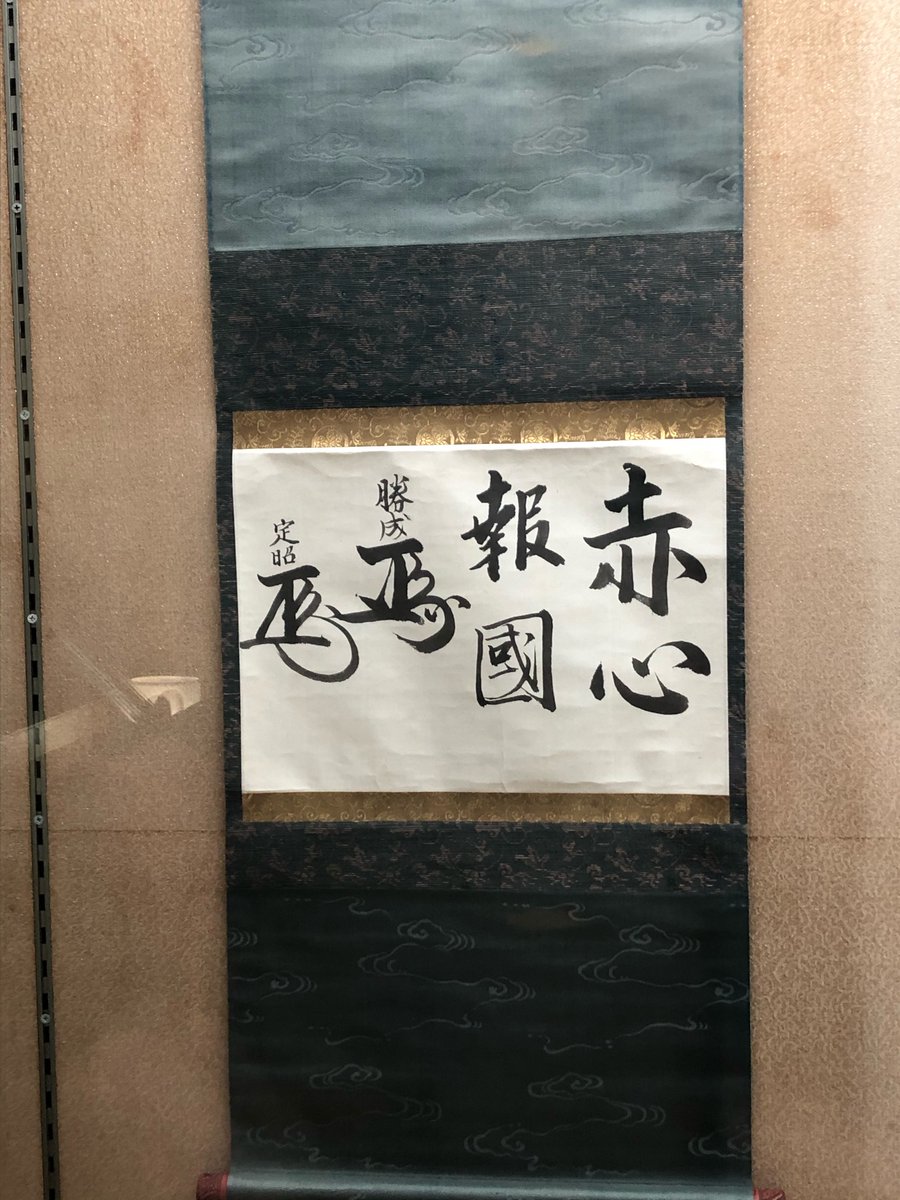 赤心
報國
勝成
定昭